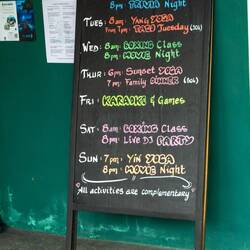 8pm: TRIVIA Night
TUES: 8am: YANG YOGA
From 7pm: TACO Tuesday (50k)
WED: 8am: BOXING Class
8pm: MOVIE Night
THUR: 6pm: Sunset YOGA
7pm: Family DINNER (50k)
FRI: KARAOKE & Games
SAT: 8am: BOXING Class
8pm: Live DJ PARTY
SUN: 7pm: YIN YOGA
8pm: MOVIE Night
"All activities are complementary"